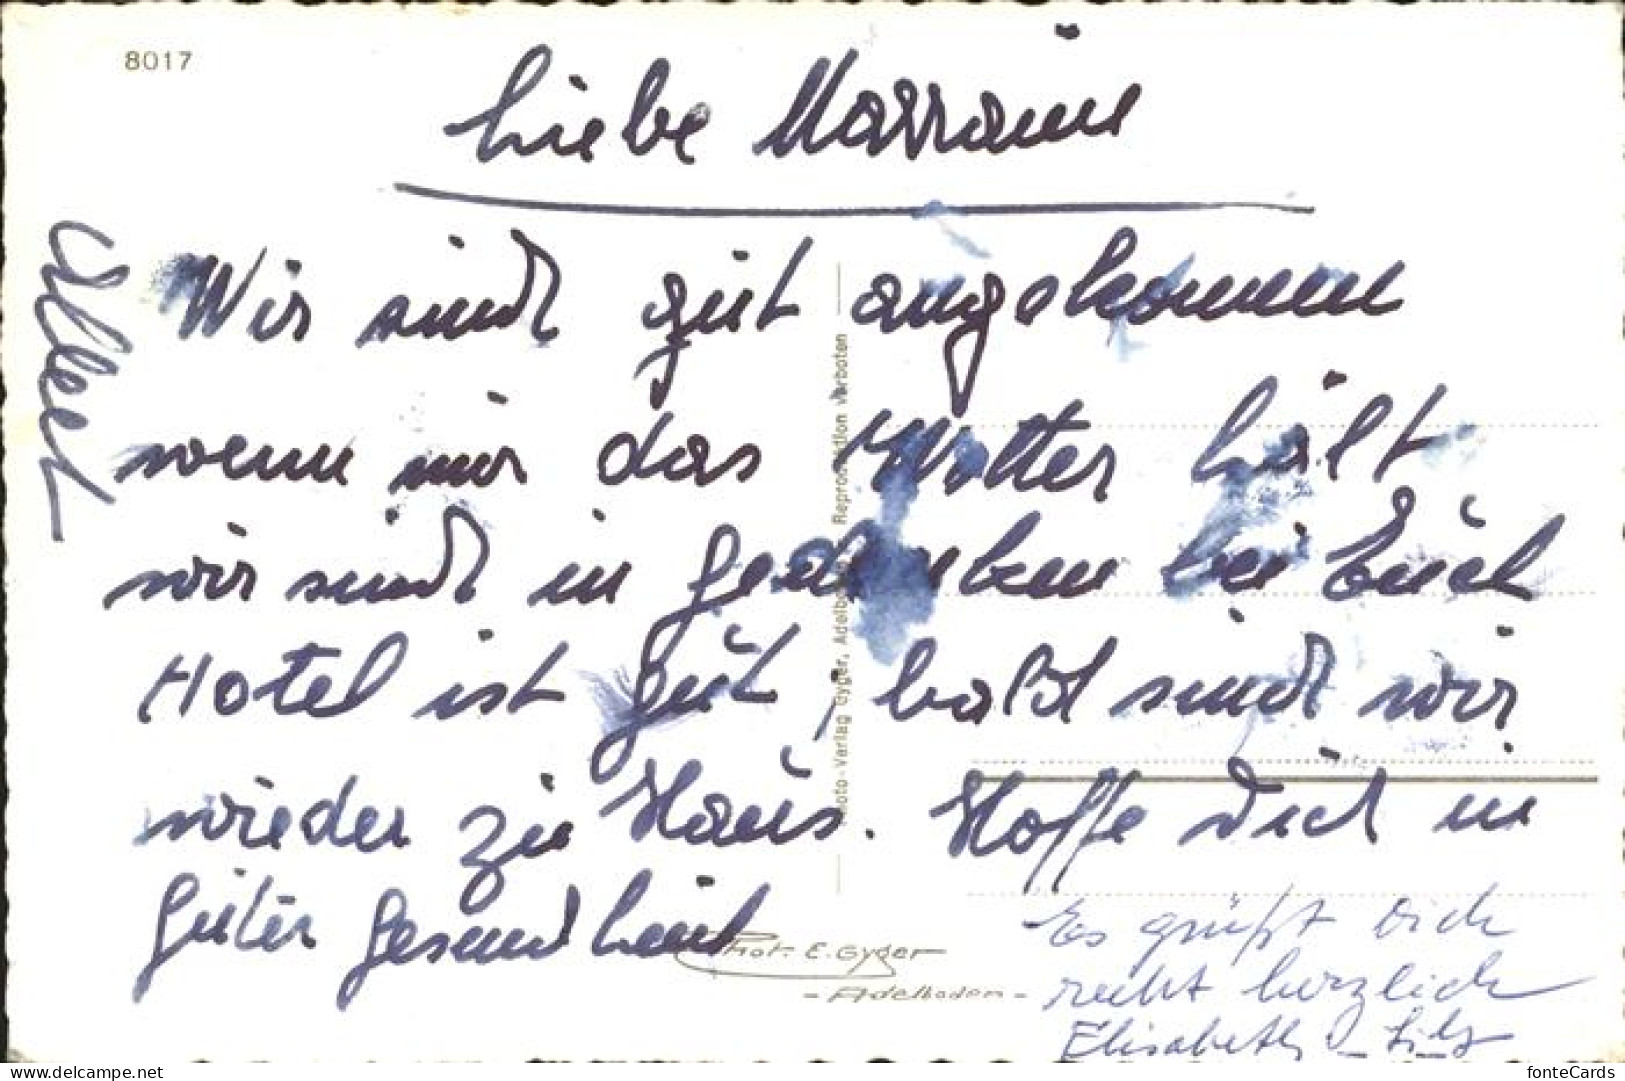 8017
Liebe Marraine
Wir sind gut angekommen
wenn nur das Wetter hält
wir sind in gedanken bei Euch
Hotel ist gut, bald sind wir
wieder zu Haus. Hoffe Dich in
guter gesundheit
Es grüßt Dich
recht herzlich
Elisabeth
Photo-Verlag Gyger, Adelboden Reproduktion verboten
Phot. E. Gyger
- Adelboden -
fonteCards